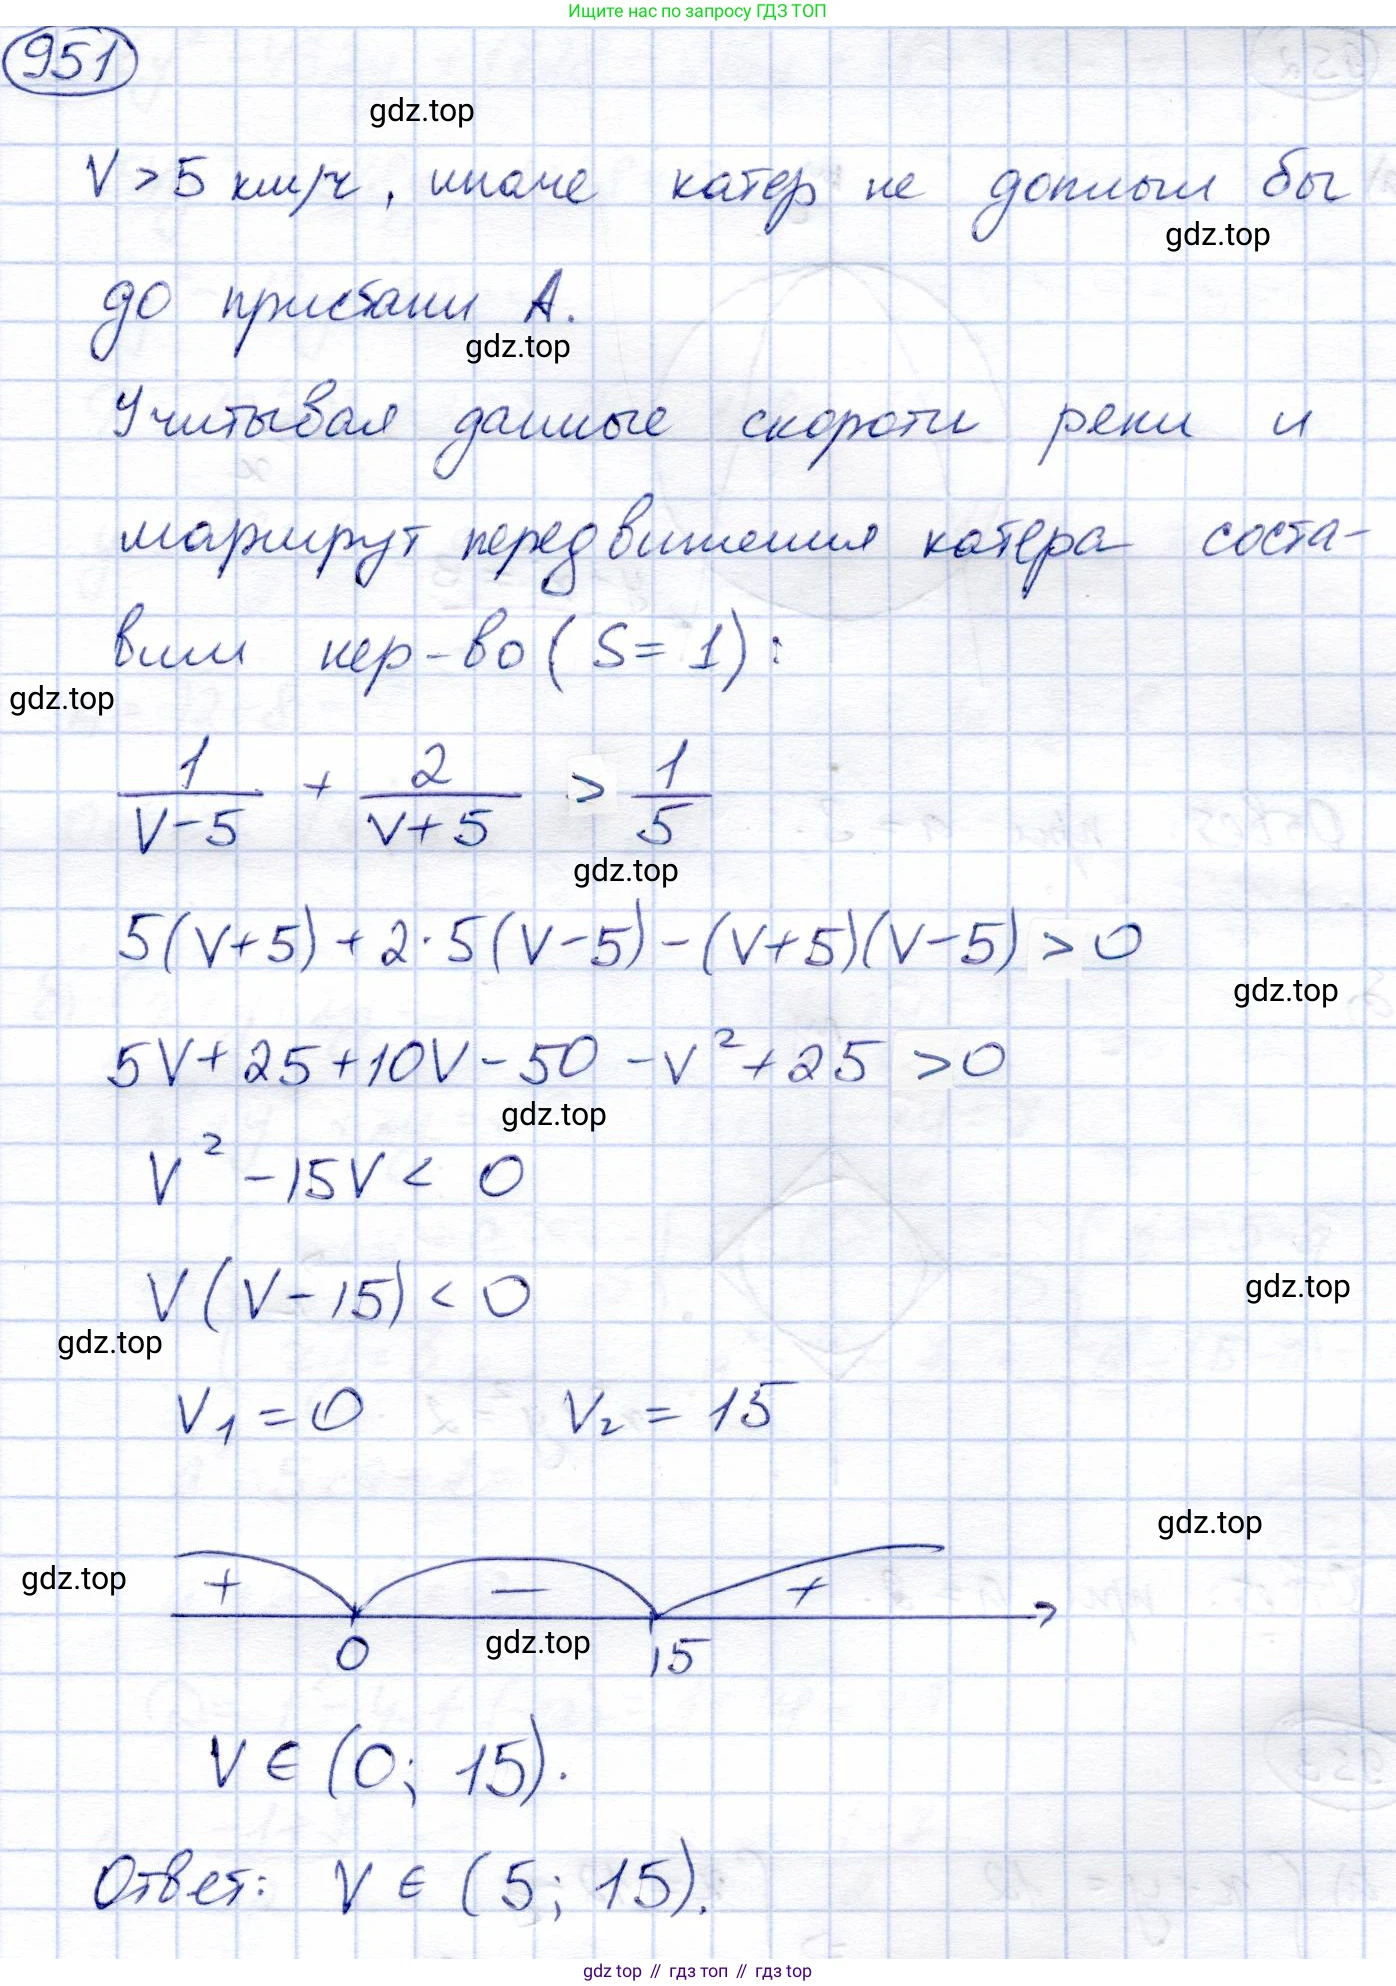 Ищите нас по запросу ГДЗ ТОП
951
gdz.top
V > 5 км/ч, иначе катер не доплыл бы
gdz.top
до пристани А.
gdz.top
Учитывая данные скорости реки и
маршрут передвижения катера соста-
вим нер-во (S = 1):
gdz.top
1/(V-5) + 2/(V+5) > 1/5
gdz.top
5(V+5) + 2·5(V-5) - (V+5)(V-5) > 0
gdz.top
5V + 25 + 10V - 50 - V² + 25 > 0
gdz.top
V² - 15V < 0
V(V - 15) < 0
gdz.top
gdz.top
V₁ = 0 V₂ = 15
gdz.top
gdz.top
+ — +
0 gdz.top 15
V ∈ (0; 15).
Ответ: V ∈ (5; 15).
gdz top // гдз топ // гдз top